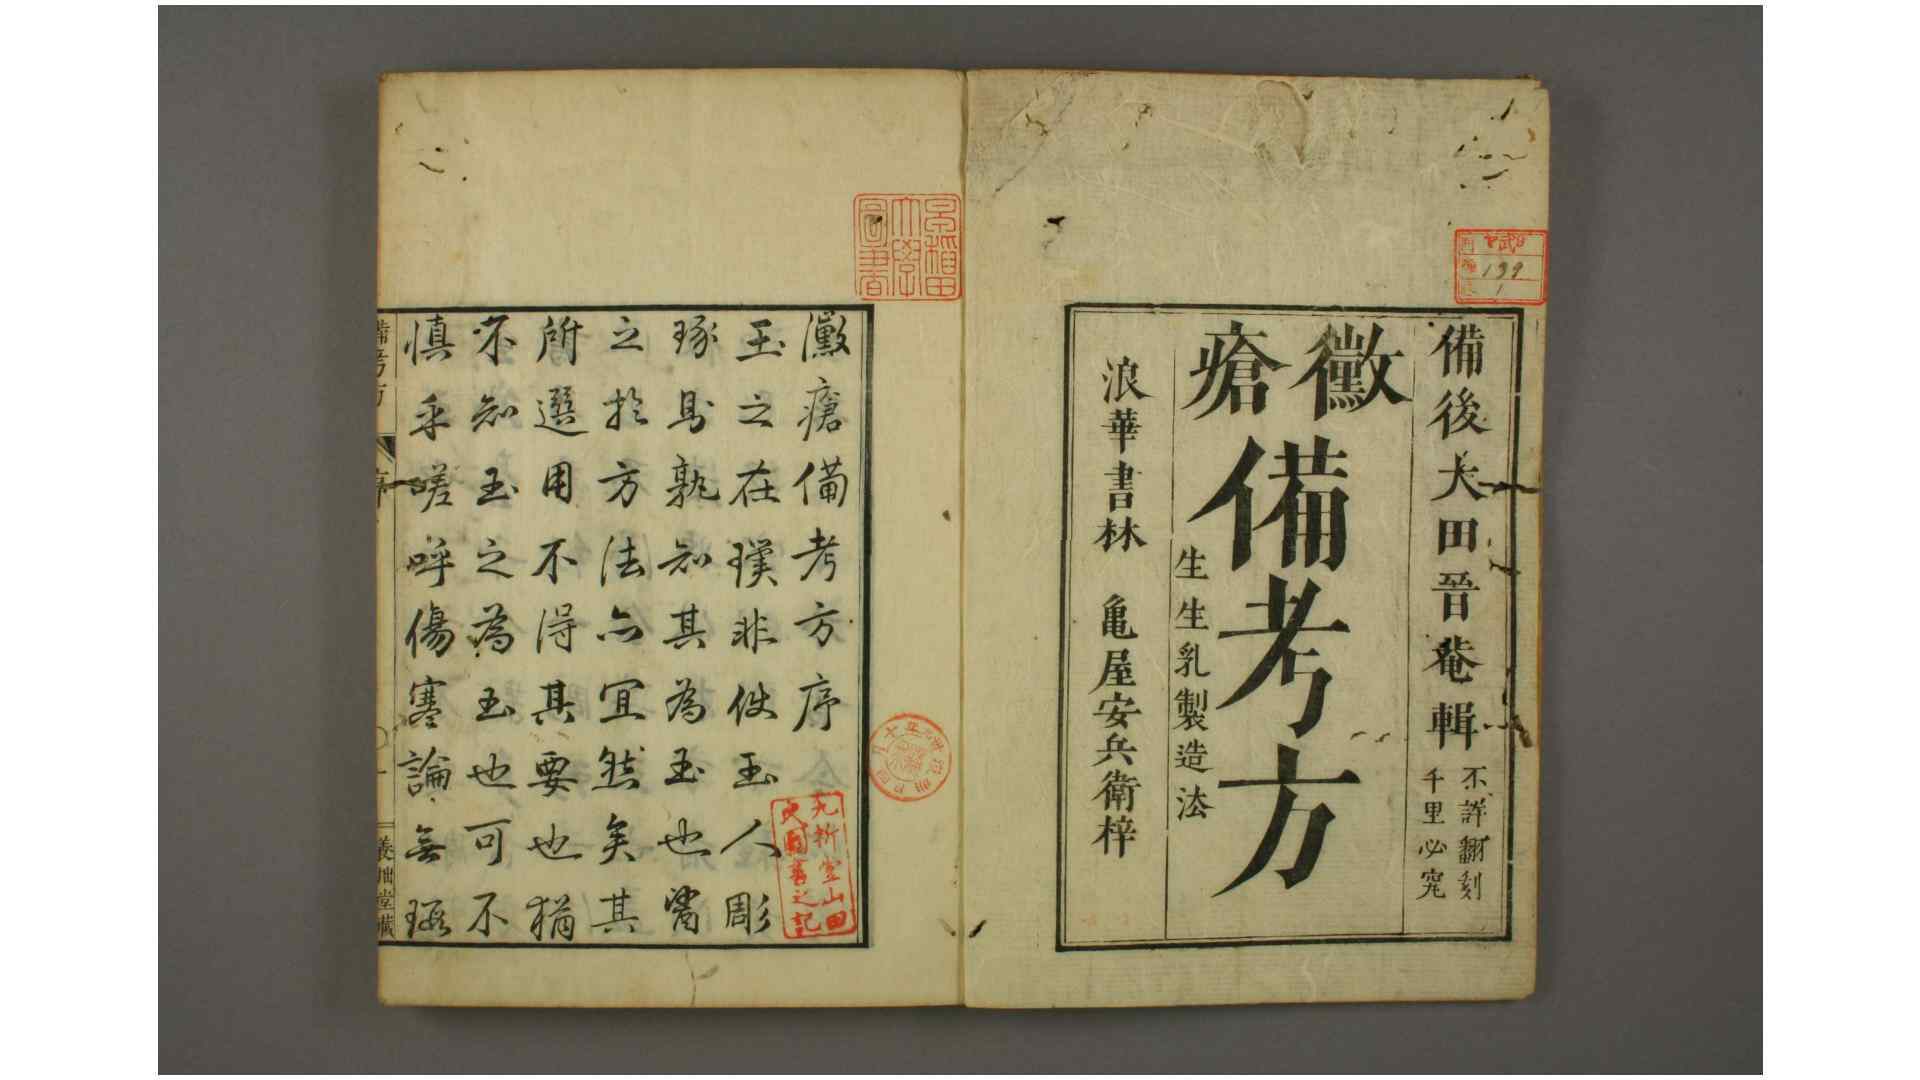 備後大田晉菴輯
不許翻刻
千里必究
黴瘡
備考方
生生乳製造法
浪華書林 亀屋安兵衛梓
早稲田大學圖書
199
1
黴瘡備考方序
玉之在璞非使玉人彫
琢馬孰知其為玉也醫
之於方法亦宜然矣其
所選用不得其要也猶
不知玉之為玉也可不
慎乎嗟呼傷寒論無
備考方
序
一